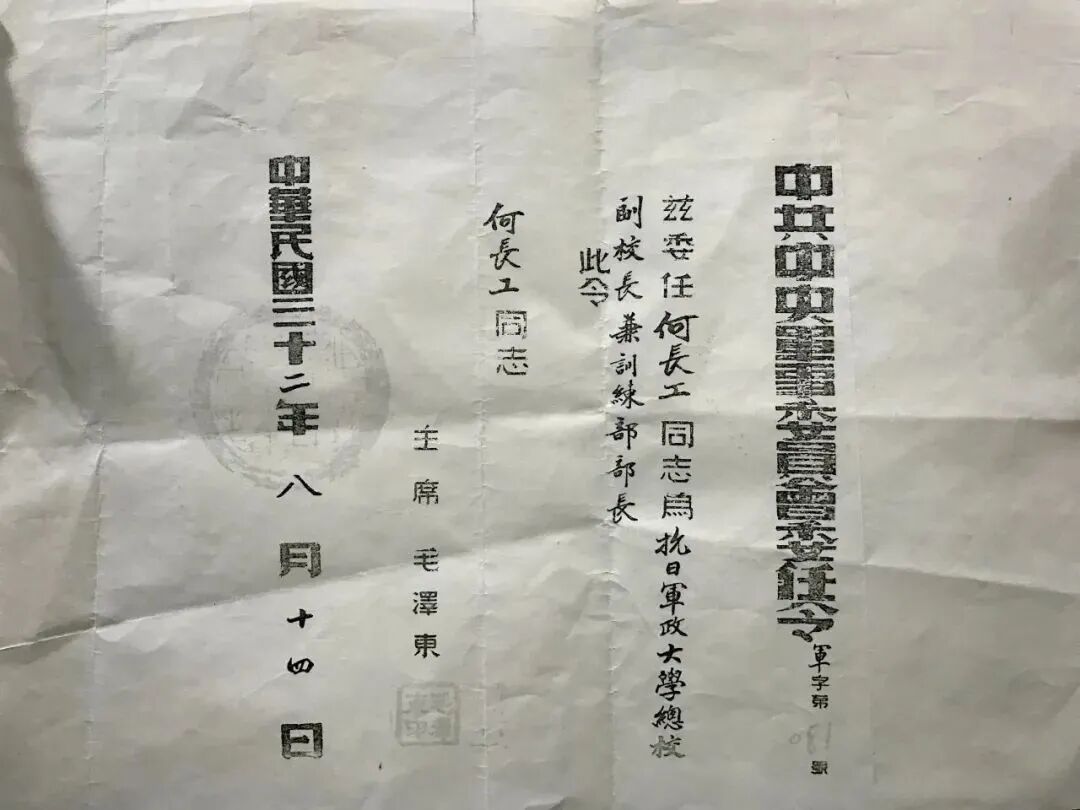 中共中央軍事委員會委任令
軍字第 號
茲委任何長工同志為抗日軍政大學總校
副校長兼訓練部部長
此令
何長工同志
主席 毛澤東
中華民國三十二年八月十四日